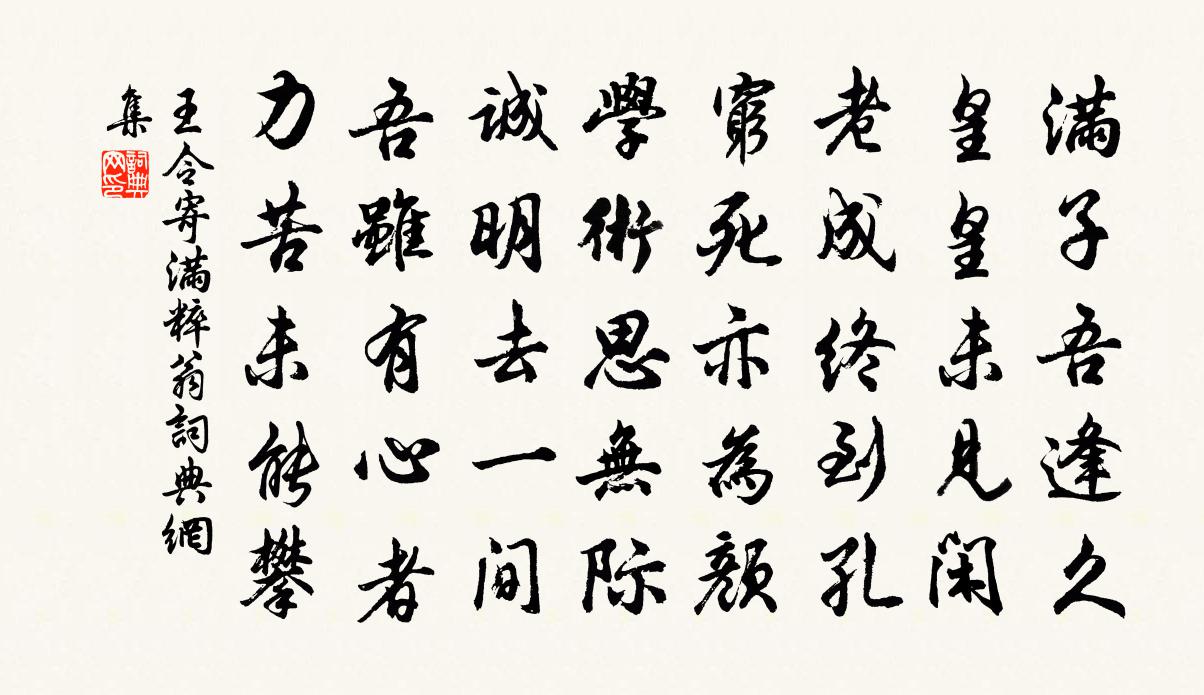 滿子吾逢久
皇皇未見閑
老成終到孔
窮死亦為顏
學術思無際
誠明去一間
吾雖有心者
力苦未能攀
王令寄滿粹翁詞典網
集
詞典
网印